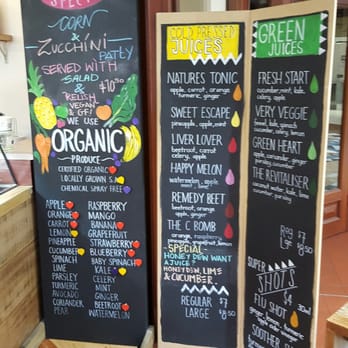 SPECI
CORN
&
ZUCCHINI
PATTY
SERVED WITH
SALAD
&
RELISH
$10.50
VEGAN
& GF!
WE USE
ORGANIC
PRODUCE
CERTIFIED ORGANIC
LOCALLY GROWN
CHEMICAL SPRAY FREE
APPLE
ORANGE
CARROT
LEMON
PINEAPPLE
CUCUMBER
SPINACH
LIME
PARSLEY
TURMERIC
AVOCADO
CORIANDER
PEAR
RASPBERRY
MANGO
BANANA
GRAPEFRUIT
STRAWBERRY
BLUEBERRY
BABY SPINACH
KALE
CELERY
MINT
GINGER
BEETROOT
WATERMELON
COLD PRESSED
JUICES
NATURES TONIC
apple, carrot, orange,
turmeric, ginger
SWEET ESCAPE
pineapple, apple, mint
LIVER LOVER
beetroot, carrot,
apple, lemon
HAPPY MELON
watermelon, apple,
mint, lime
REMEDY BEET
beetroot, orange
apple, ginger
THE C BOMB
orange,
pineapple, grapefruit, lemon
-SPECIAL-
HONEY DEW WANT
A JUICE?
HONEYDEW, LIME
& CUCUMBER
REGULAR $7
LARGE
GREEN
JUICES
FRESH START
cucumber, mint, kale,
celery, apple
VERY VEGGIE
cucumber, celery, lemon
GREEN HEART
apple, cucumber,
parsley
THE REVITALISER
coconut water, kale, lime
cucumber, parsley
Reg $7
Lge
SUPER
SHOTS
$4
FLU SHOT
30ml
SOOTHER